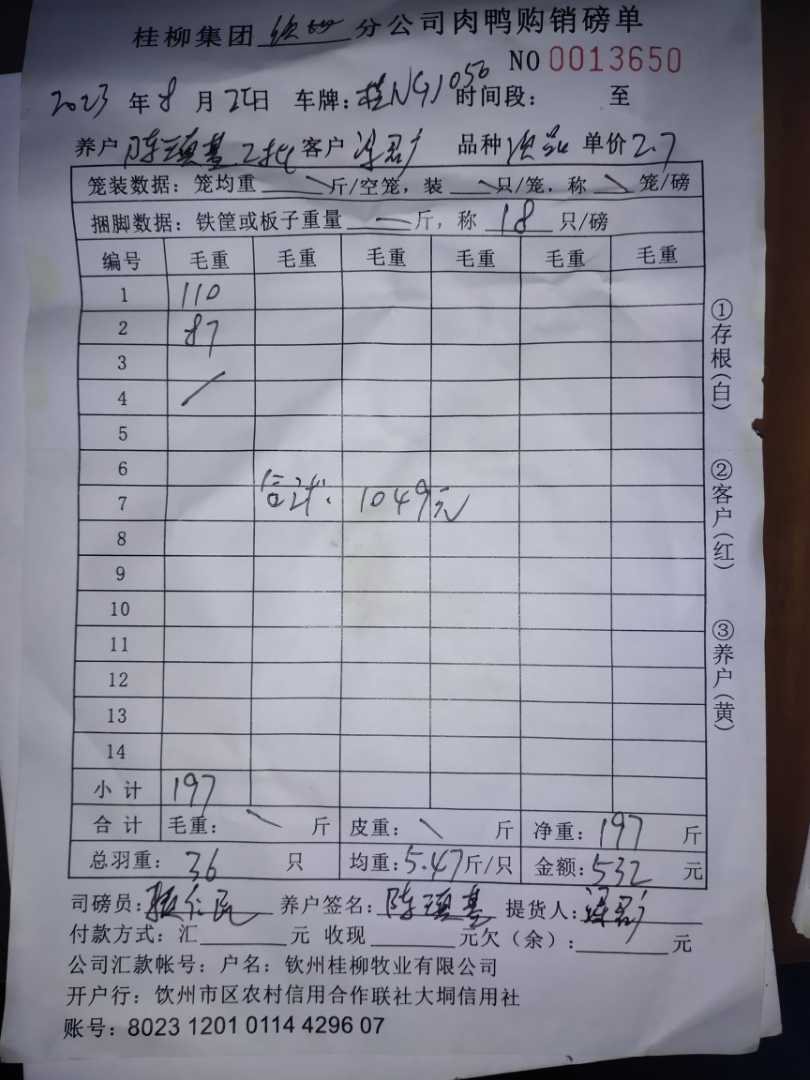 桂柳集团 分公司肉鸭购销磅单
NO 0013650
2023 年 8 月 日 车牌：桂NG1056 时间段： 至
养户 陈 基 客户 品种 单价 2.7
笼装数据：笼均重 斤/空笼，装 只/笼，称 笼/磅
捆脚数据：铁筐或板子重量 一 斤，称 18 只/磅
编号 毛重 毛重 毛重 毛重 毛重 毛重
1 110
2 87
3
4
5
6
7 合计：1049元
8
9
10
11
12
13
14
小计 197
合计 毛重： 斤 皮重： 斤 净重：197 斤
总羽重：36 只 均重：5.47斤/只 金额：532 元
司磅员： 养户签名：陈 基 提货人：
付款方式：汇 元 收现 元欠（余）： 元
公司汇款帐号：户名：钦州桂柳牧业有限公司
开户行：饮州市区农村信用合作联社大垌信用社
账号：8023 1201 0114 4296 07
①存根（白）
②客户（红）
③养户（黄）